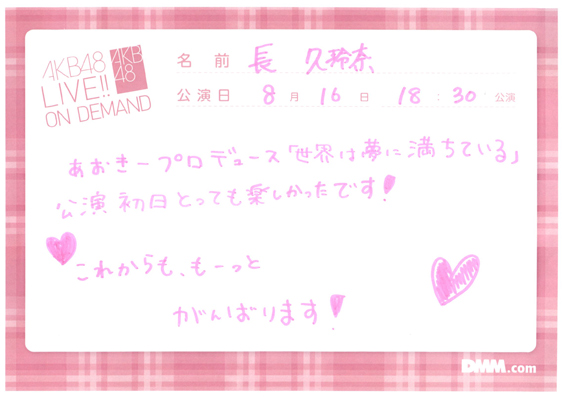 AKB48
LIVE!!
ON DEMAND
AKB
48
名前 長 久玲奈
公演日 8月16日 18:30公演
あおきープロデュース「世界は夢に満ちている」
公演初日とっても楽しかったです!
これからも、もーっと
がんばります!
DMM.com